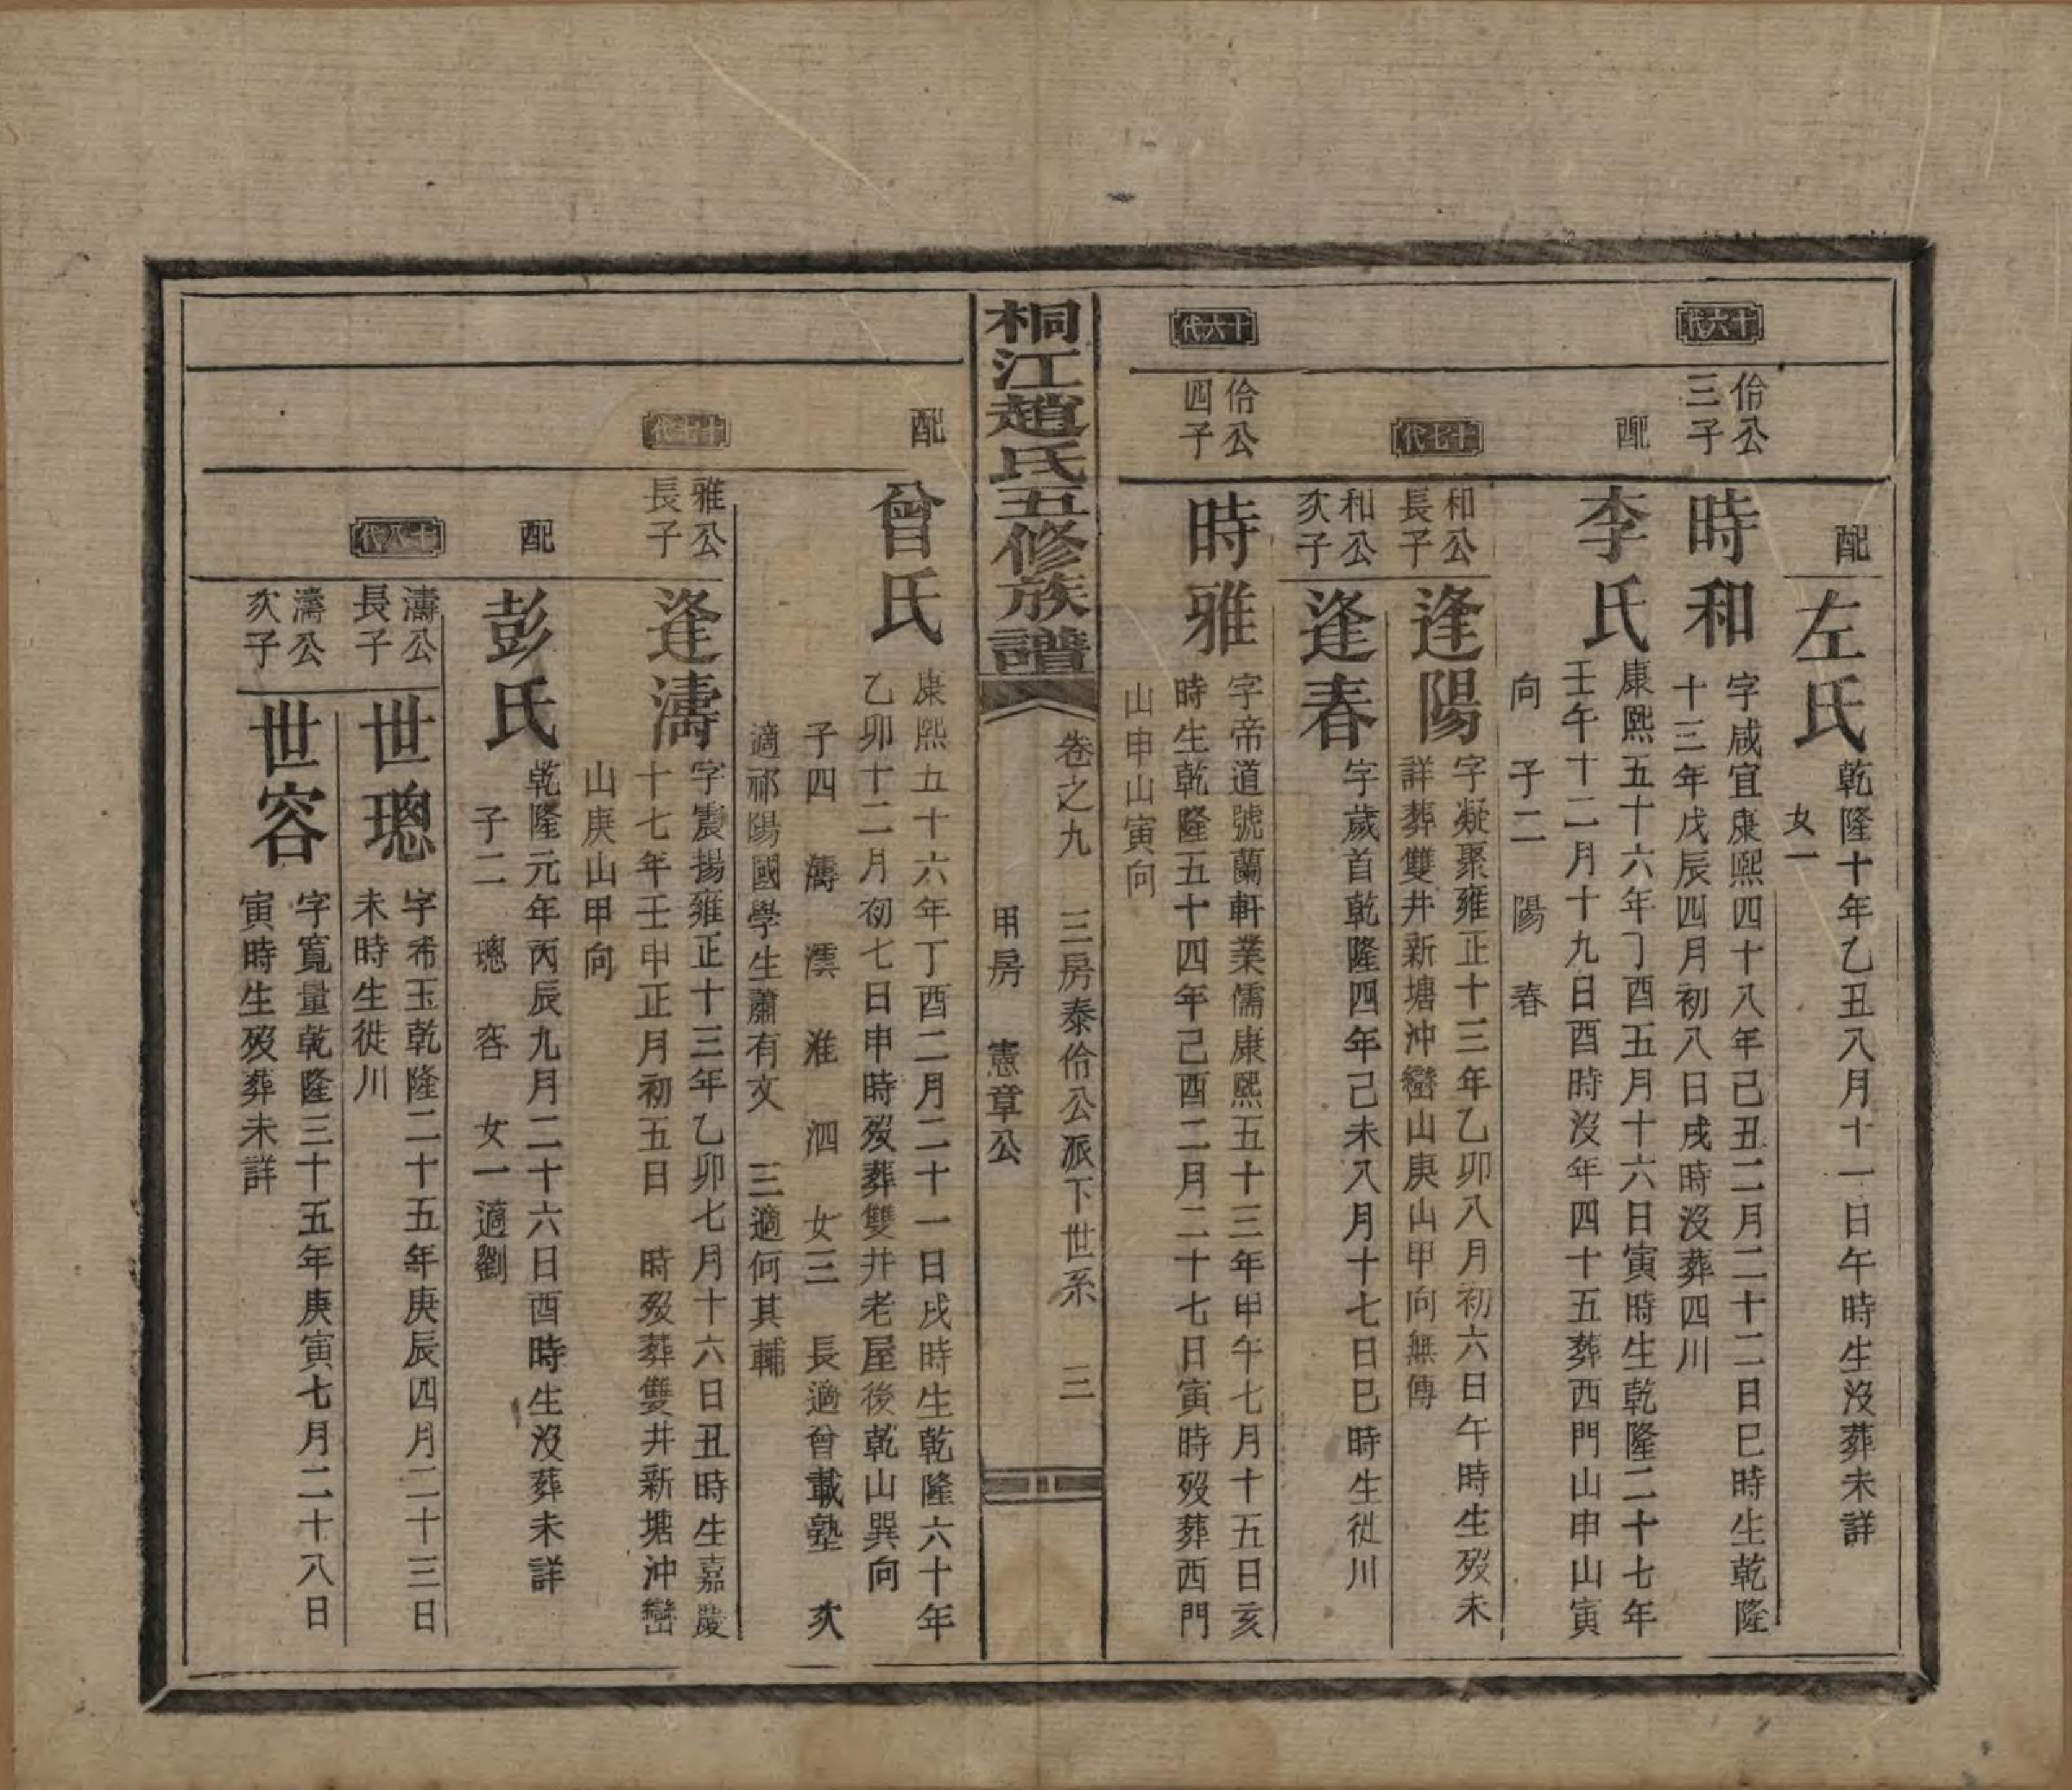 配
左氏
乾隆十年乙丑八月十一日午時生沒葬未詳
女一
十六代
佮公
三子
時和
字咸宜康熙四十八年己丑二月二十二日巳時生乾隆
十三年戊辰四月初八日戌時沒葬四川
配
李氏
康熙五十六年丁酉五月十六日寅時生乾隆二十七年
壬午十二月十九日酉時沒年四十五葬西門山申山寅
向　子二　陽　春
十七代
和公
長子
逢陽
字凝聚雍正十三年乙卯八月初六日午時生歿未
詳葬雙井新塘沖巒山庚山甲向無傳
和公
次子
逢春
字歲首乾隆四年己未八月十七日巳時生從川
十六代
佮公
四子
時雅
字帝道號蘭軒業儒康熙五十三年甲午七月十五日亥
時生乾隆五十四年己酉二月二十七日寅時歿葬西門
山申山寅向
桐江趙氏五修族譜
卷之九　三房泰佮公派下世系　三
甲房　憲章公
配
曾氏
康熙五十六年丁酉二月二十一日戌時生乾隆六十年
乙卯十二月初七日申時歿葬雙井老屋後乾山巽向
子四　濤　澐　淮　泗　女三　長適曾載塾　次
適祁陽國學生蕭有文　三適何其輔
十七代
雅公
長子
逢濤
字震揚雍正十三年乙卯七月十六日丑時生嘉慶
十七年壬申正月初五日　時歿葬雙井新塘沖巒
山庚山甲向
配
彭氏
乾隆元年丙辰九月二十六日酉時生沒葬未詳
子二　璁　容　女一適劉
十八代
濤公
長子
世璁
字希玉乾隆二十五年庚辰四月二十三日
未時生從川
濤公
次子
世容
字寬量乾隆三十五年庚寅七月二十八日
寅時生歿葬未詳